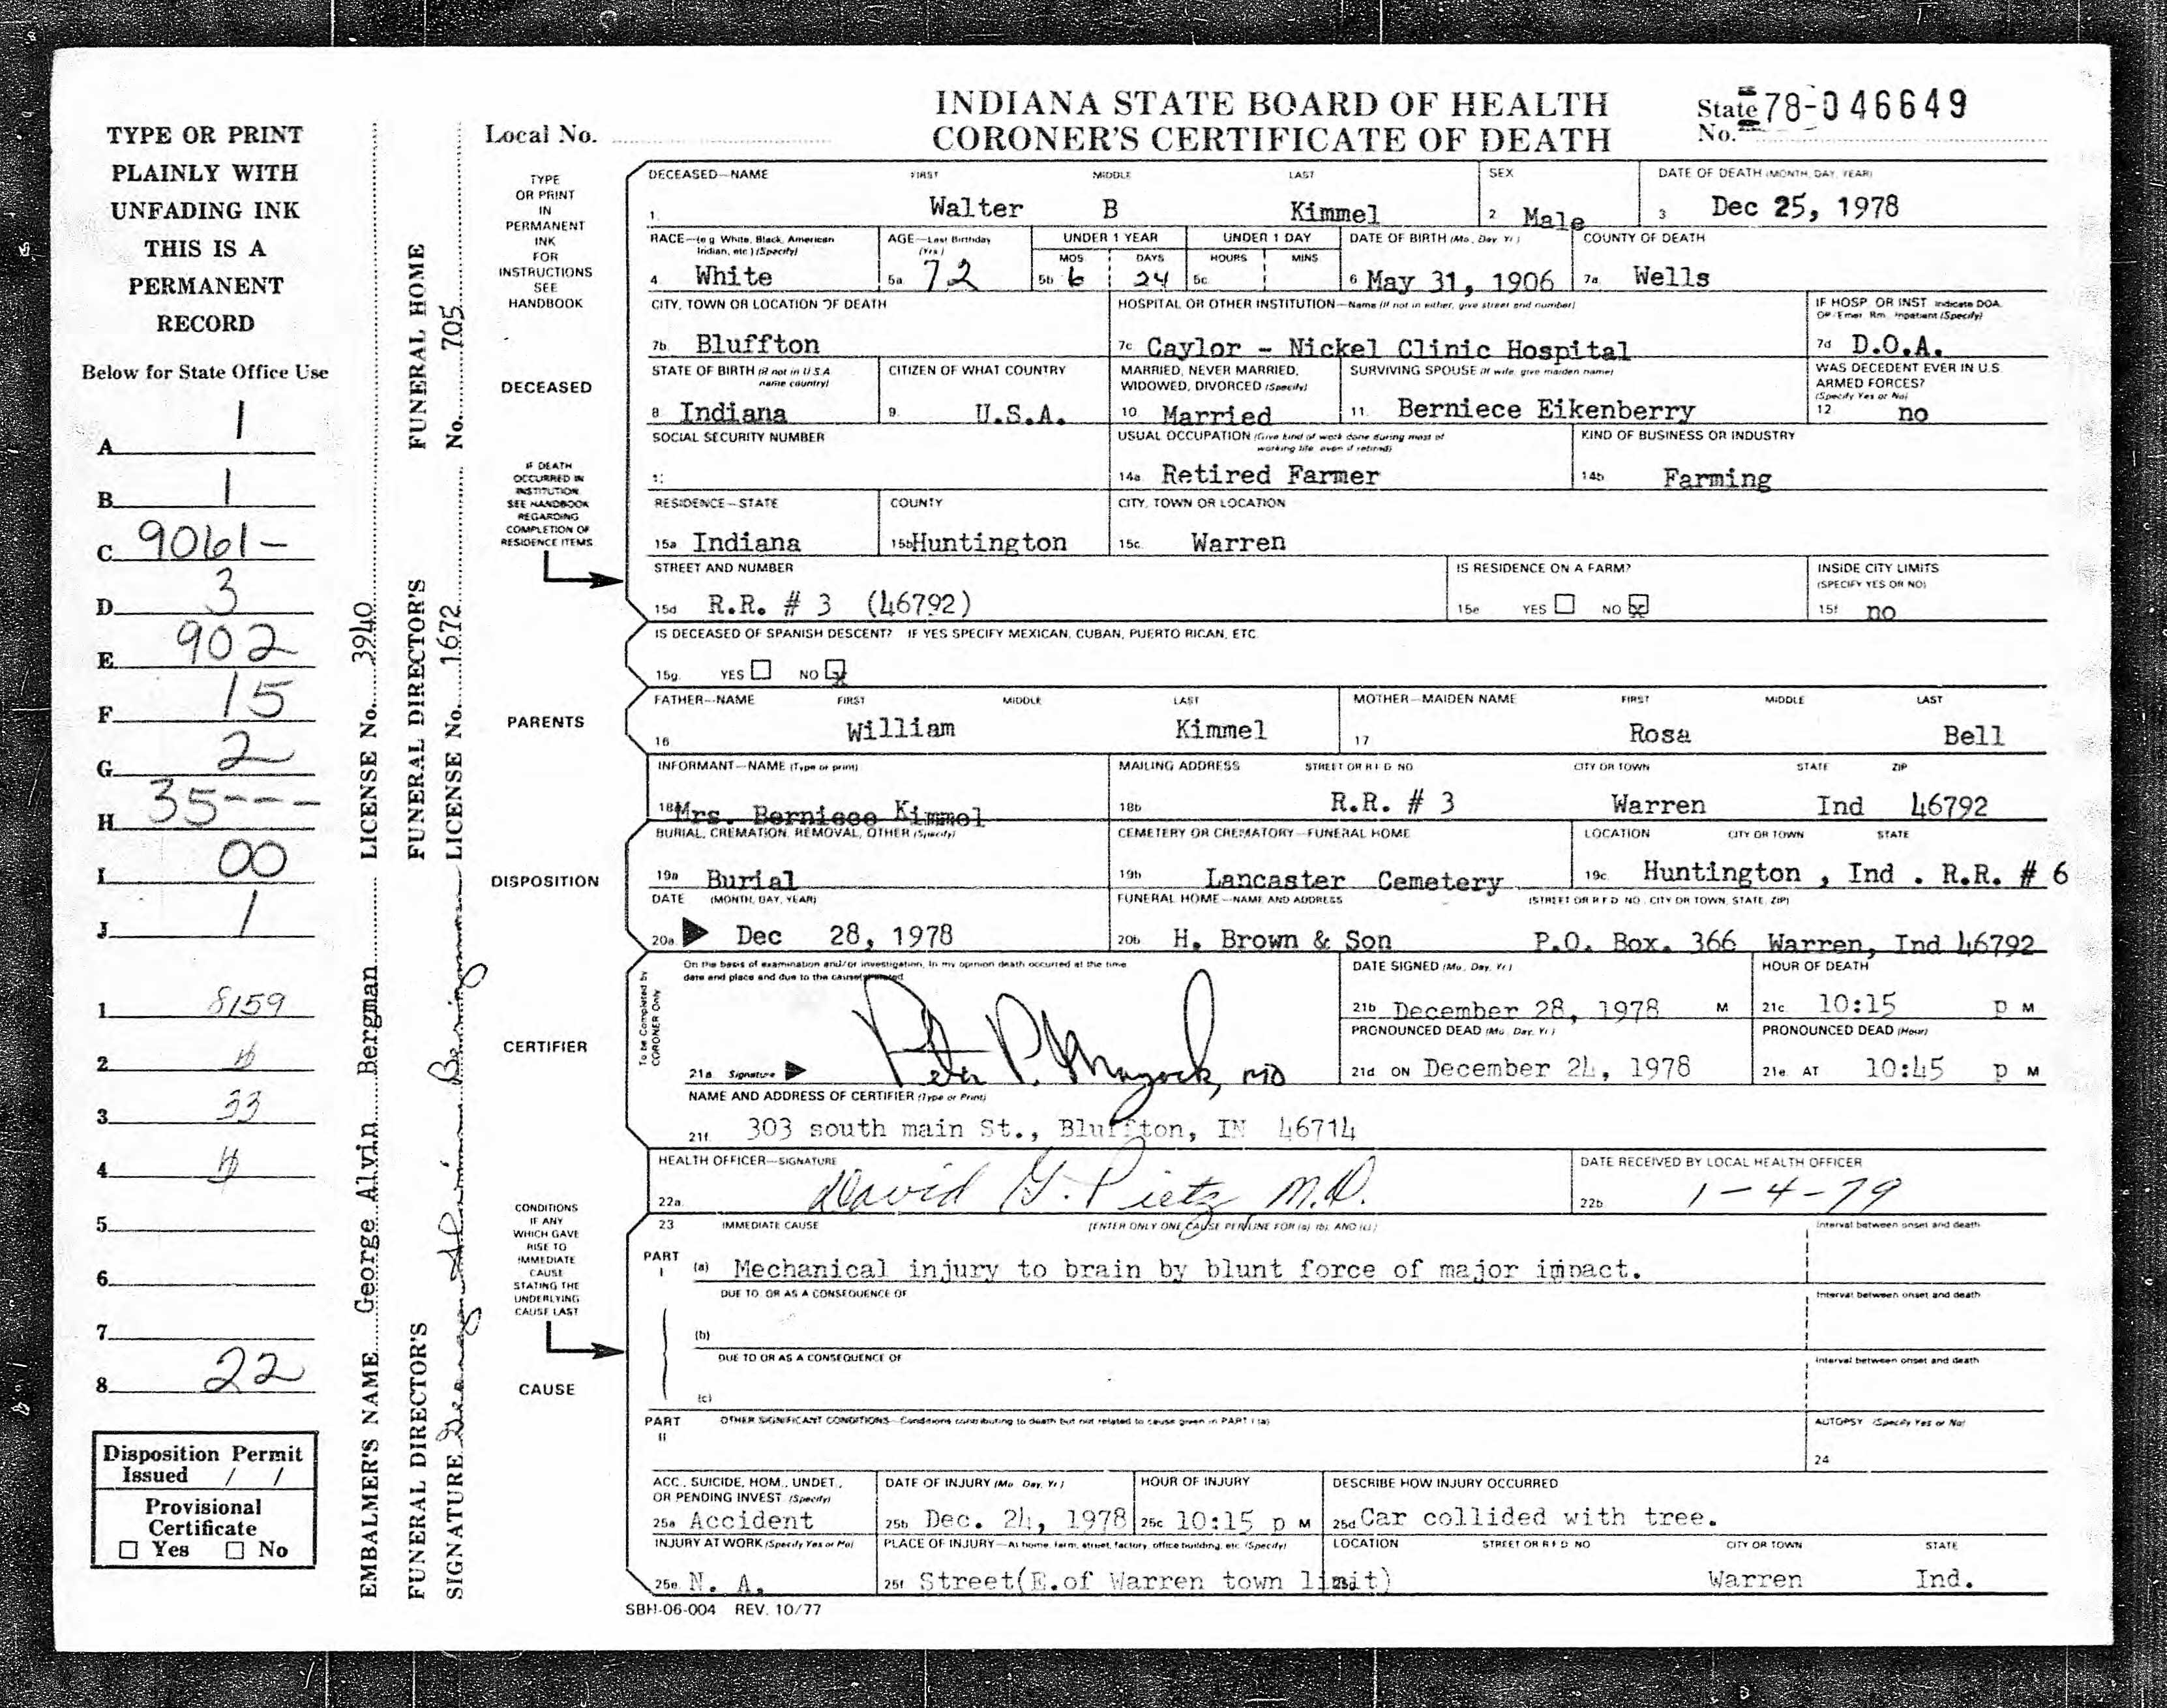 INDIANA STATE BOARD OF HEALTH
CORONER'S CERTIFICATE OF DEATH
Local No.
State No. 78-046649
TYPE OR PRINT
PLAINLY WITH
UNFADING INK
THIS IS A
PERMANENT
RECORD
Below for State Office Use
A 1
B 1
C 9061-
D 3
E 902
F 15
G 2
H 35---
I 00
J 1
1 8159
2
3 33
4
5
6
7
8 22
Disposition Permit
Issued / /
Provisional
Certificate
Yes No
EMBALMER'S NAME George Alvin Bergman LICENSE No. 3940
FUNERAL DIRECTOR'S FUNERAL DIRECTOR'S FUNERAL HOME
SIGNATURE LICENSE No. 1672 No. 705
TYPE
OR PRINT
IN
PERMANENT
INK
FOR
INSTRUCTIONS
SEE
HANDBOOK
DECEASED
IF DEATH
OCCURRED IN
INSTITUTION
SEE HANDBOOK
REGARDING
COMPLETION OF
RESIDENCE ITEMS
PARENTS
DISPOSITION
CERTIFIER
CONDITIONS
IF ANY
WHICH GAVE
RISE TO
IMMEDIATE
CAUSE
STATING THE
UNDERLYING
CAUSE LAST
CAUSE
DECEASED—NAME FIRST MIDDLE LAST SEX DATE OF DEATH (MONTH, DAY, YEAR)
1. Walter B Kimmel 2 Male 3 Dec 25, 1978
RACE—(e g White, Black, American Indian, etc ) (Specify) AGE—Last Birthday (Yrs ) UNDER 1 YEAR UNDER 1 DAY DATE OF BIRTH (Mo, Day Yr ) COUNTY OF DEATH
MOS DAYS HOURS MINS
4 White 5a 72 5b 6 24 5c 6 May 31, 1906 7a Wells
CITY, TOWN OR LOCATION OF DEATH HOSPITAL OR OTHER INSTITUTION—Name (If not in either, give street and number) IF HOSP. OR INST Indicate DOA, OP/Emer. Rm. Inpatient (Specify)
7b Bluffton 7c Caylor - Nickel Clinic Hospital 7d D.O.A.
STATE OF BIRTH (If not in U S A name country) CITIZEN OF WHAT COUNTRY MARRIED, NEVER MARRIED, WIDOWED, DIVORCED (Specify) SURVIVING SPOUSE (If wife, give maiden name) WAS DECEDENT EVER IN U.S. ARMED FORCES? (Specify Yes or No)
8 Indiana 9. U.S.A. 10 Married 11. Berniece Eikenberry 12 no
SOCIAL SECURITY NUMBER USUAL OCCUPATION (Give kind of work done during most of working life even if retired) KIND OF BUSINESS OR INDUSTRY
14a Retired Farmer 14b Farming
RESIDENCE—STATE COUNTY CITY, TOWN OR LOCATION
15a Indiana 15b Huntington 15c Warren
STREET AND NUMBER IS RESIDENCE ON A FARM? INSIDE CITY LIMITS (SPECIFY YES OR NO)
15d R.R. # 3 (46792) 15e YES NO X 15f no
IS DECEASED OF SPANISH DESCENT? IF YES SPECIFY MEXICAN, CUBAN, PUERTO RICAN, ETC.
15g. YES NO X
FATHER—NAME FIRST MIDDLE LAST MOTHER—MAIDEN NAME FIRST MIDDLE LAST
16 William Kimmel 17 Rosa Bell
INFORMANT—NAME (Type or print) MAILING ADDRESS STREET OR R F D NO CITY OR TOWN STATE ZIP
18a Mrs. Berniece Kimmel 18b R.R. # 3 Warren Ind 46792
BURIAL, CREMATION, REMOVAL, OTHER (Specify) CEMETERY OR CREMATORY—FUNERAL HOME LOCATION CITY OR TOWN STATE
19a Burial 19b Lancaster Cemetery 19c Huntington , Ind . R.R. # 6
DATE (MONTH, DAY, YEAR) FUNERAL HOME—NAME AND ADDRESS (STREET OR R F D NO , CITY OR TOWN, STATE, ZIP)
20a Dec 28, 1978 20b H. Brown & Son P.O. Box. 366 Warren, Ind 46792
To be Completed by CORONER Only
On the basis of examination and/or investigation, in my opinion death occurred at the time
date and place and due to the cause(s) stated
DATE SIGNED (Mo, Day, Yr ) HOUR OF DEATH
21b December 28, 1978 M 21c 10:15 p M
PRONOUNCED DEAD (Mo, Day, Yr ) PRONOUNCED DEAD (Hour)
21a Signature Peter P. MD 21d ON December 24, 1978 21e. AT 10:45 p M
NAME AND ADDRESS OF CERTIFIER (Type or Print)
21f. 303 south main St., Bluffton, IN 46714
HEALTH OFFICER—SIGNATURE DATE RECEIVED BY LOCAL HEALTH OFFICER
22a David G. Pietz M.D. 22b 1-4-79
23 IMMEDIATE CAUSE [ENTER ONLY ONE CAUSE PER LINE FOR (a) (b), AND (c).] Interval between onset and death
PART I (a) Mechanical injury to brain by blunt force of major impact.
DUE TO, OR AS A CONSEQUENCE OF Interval between onset and death
(b)
DUE TO OR AS A CONSEQUENCE OF Interval between onset and death
(c)
PART II OTHER SIGNIFICANT CONDITIONS—Conditions contributing to death but not related to cause given in PART I (a) AUTOPSY (Specify Yes or No)
24
ACC., SUICIDE, HOM., UNDET., OR PENDING INVEST. (Specify) DATE OF INJURY (Mo, Day, Yr ) HOUR OF INJURY DESCRIBE HOW INJURY OCCURRED
25a Accident 25b Dec. 24, 1978 25c 10:15 p M 25d Car collided with tree.
INJURY AT WORK (Specify Yes or No) PLACE OF INJURY—At home, farm, street, factory, office building, etc (Specify) LOCATION STREET OR R F D NO CITY OR TOWN STATE
25e N. A. 25f Street(E.of Warren town limit) Warren Ind.
SBH-06-004 REV. 10/77